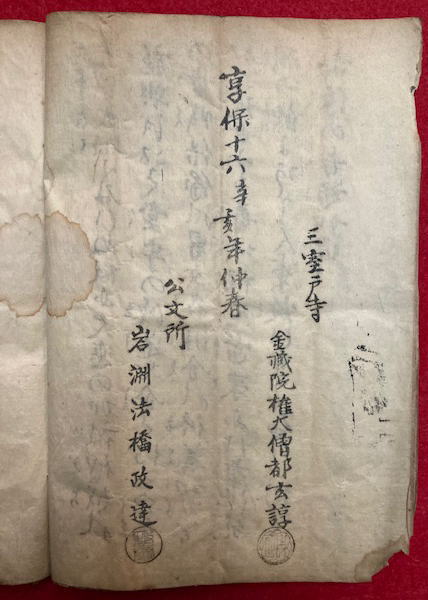 三室戸寺
金蔵院権大僧都玄諄
享保十六辛亥年仲春
公文所
岩淵法橋政達